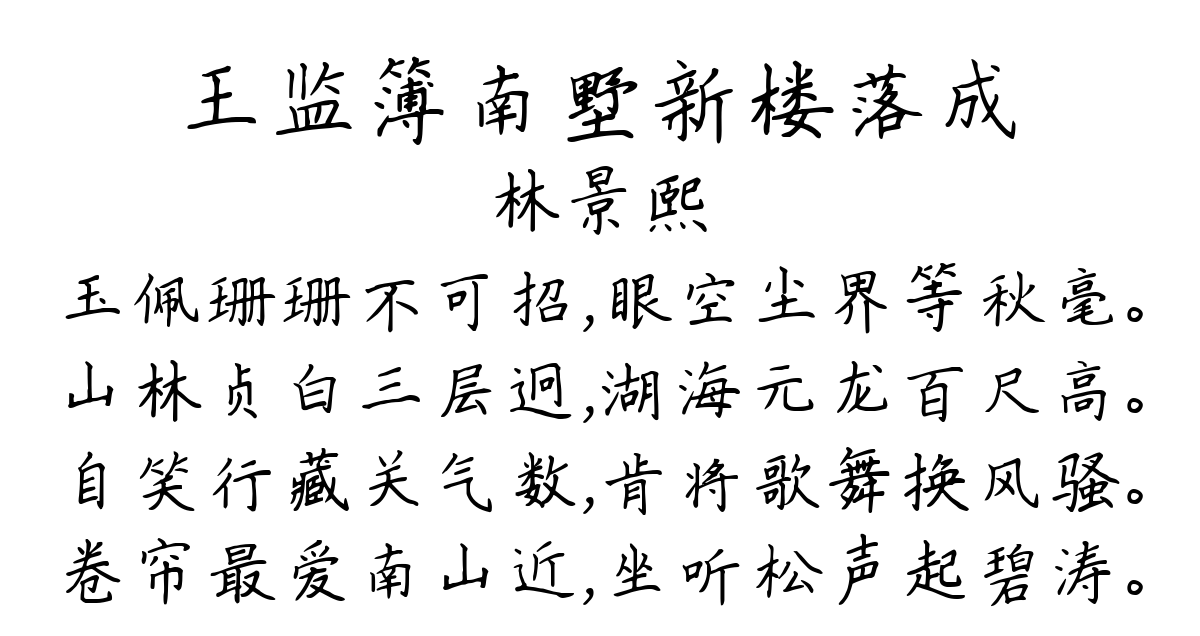 王监簿南墅新楼落成
林景熙
玉佩珊珊不可招,眼空尘界等秋毫。
山林贞白三层迥,湖海元龙百尺高。
自笑行藏关气数,肯将歌舞换风骚。
卷帘最爱南山近,坐听松声起碧涛。